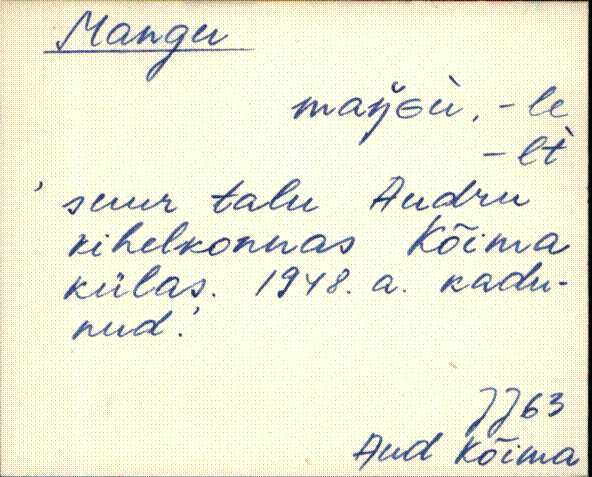 Mangu
maŋ̆ɢù, -le
-lt̀
' suur talu Audru
kihelkonnas Kõima
külas. 1948. a. kadu-
nud.'
JJ63
Aud Kõima